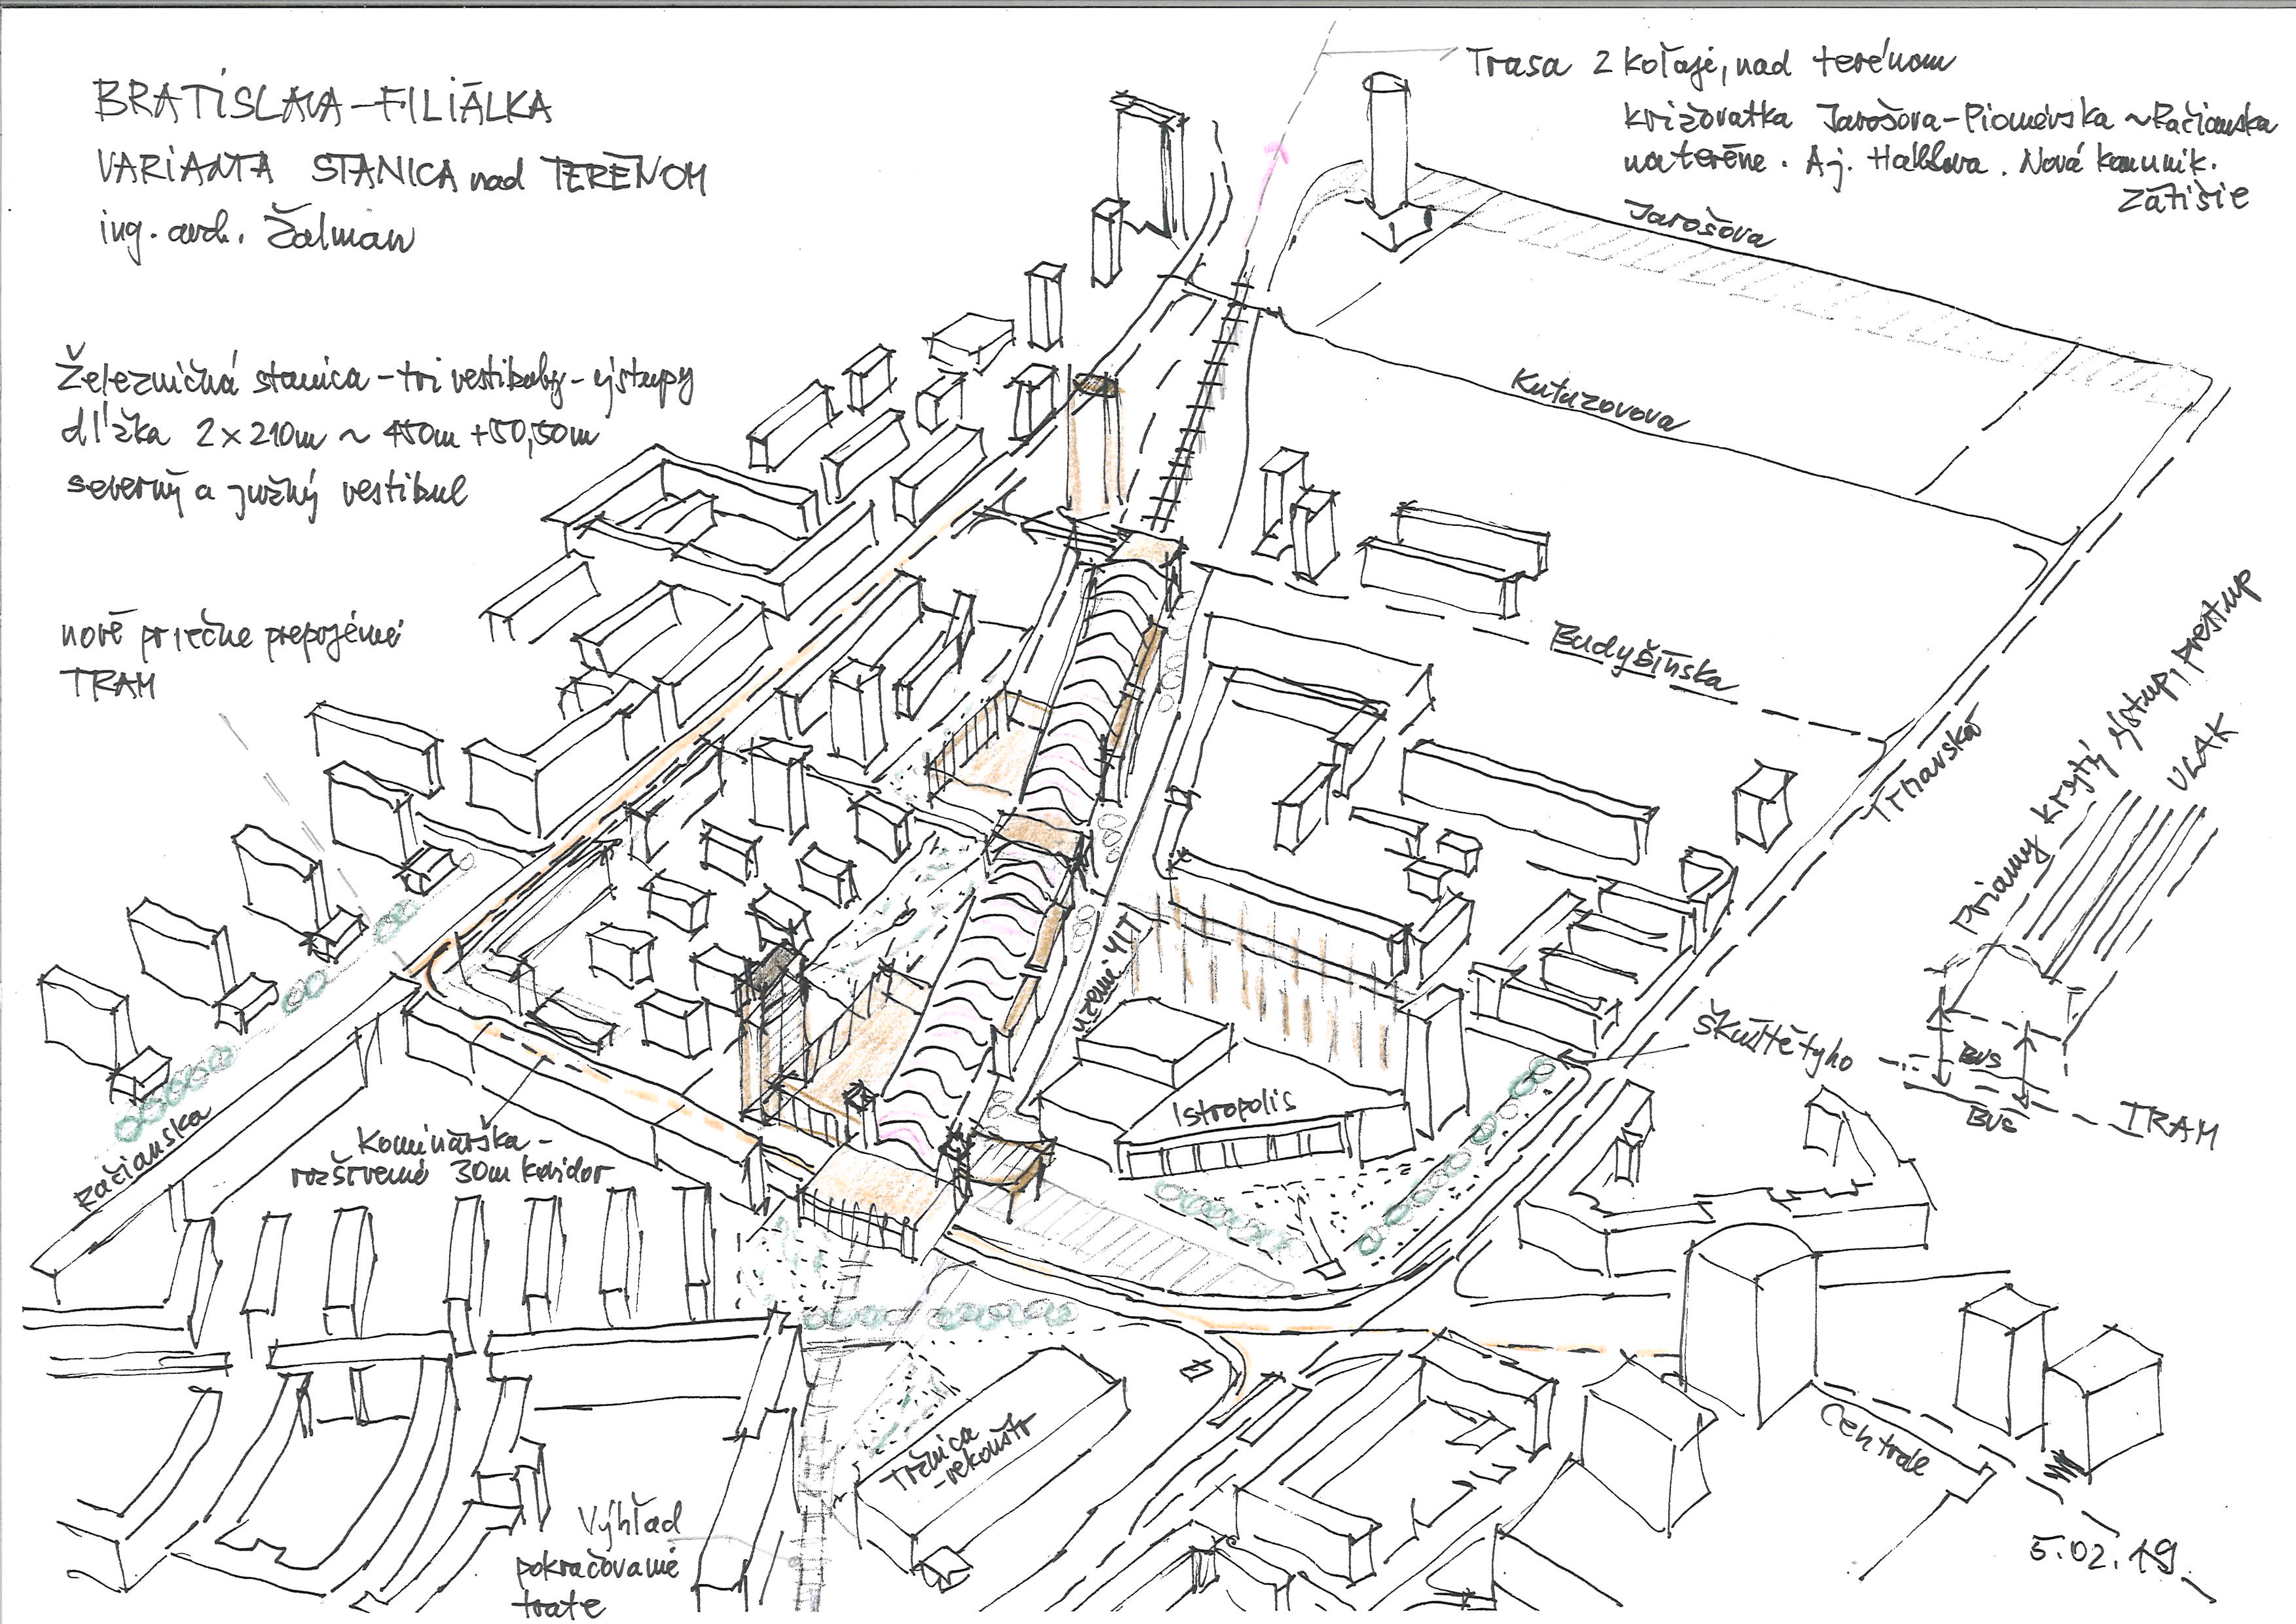 BRATISLAVA-FILIÁLKA
VARIANTA STANICA nad TERÉNOM
ing. arch. Žalman
Trasa 2 koľaje, nad terénom
križovatka Jarošova-Pionierska ~ Račianska
na teréne. Aj. Hálkova. Nová komunik.
Zátišie
Železničná stanica - tri vestibuly - výstupy
dĺžka 2x210m ~ 450m + 50,50m
severný a južný vestibul
nové priečne prepojenie
TRAM
Jarošova
Kutuzovova
Budyšínska
Trnavská
Priamy krytý výstup, prestup
VLAK
BUS
BUS
TRAM
Škultétyho
územie YIT
Istropolis
Račianska
Kominárska -
rozšírenie 30m koridor
Tržnica
-rekonštr
Výhľad
pokračovanie
trate
Centrale
5.02.19